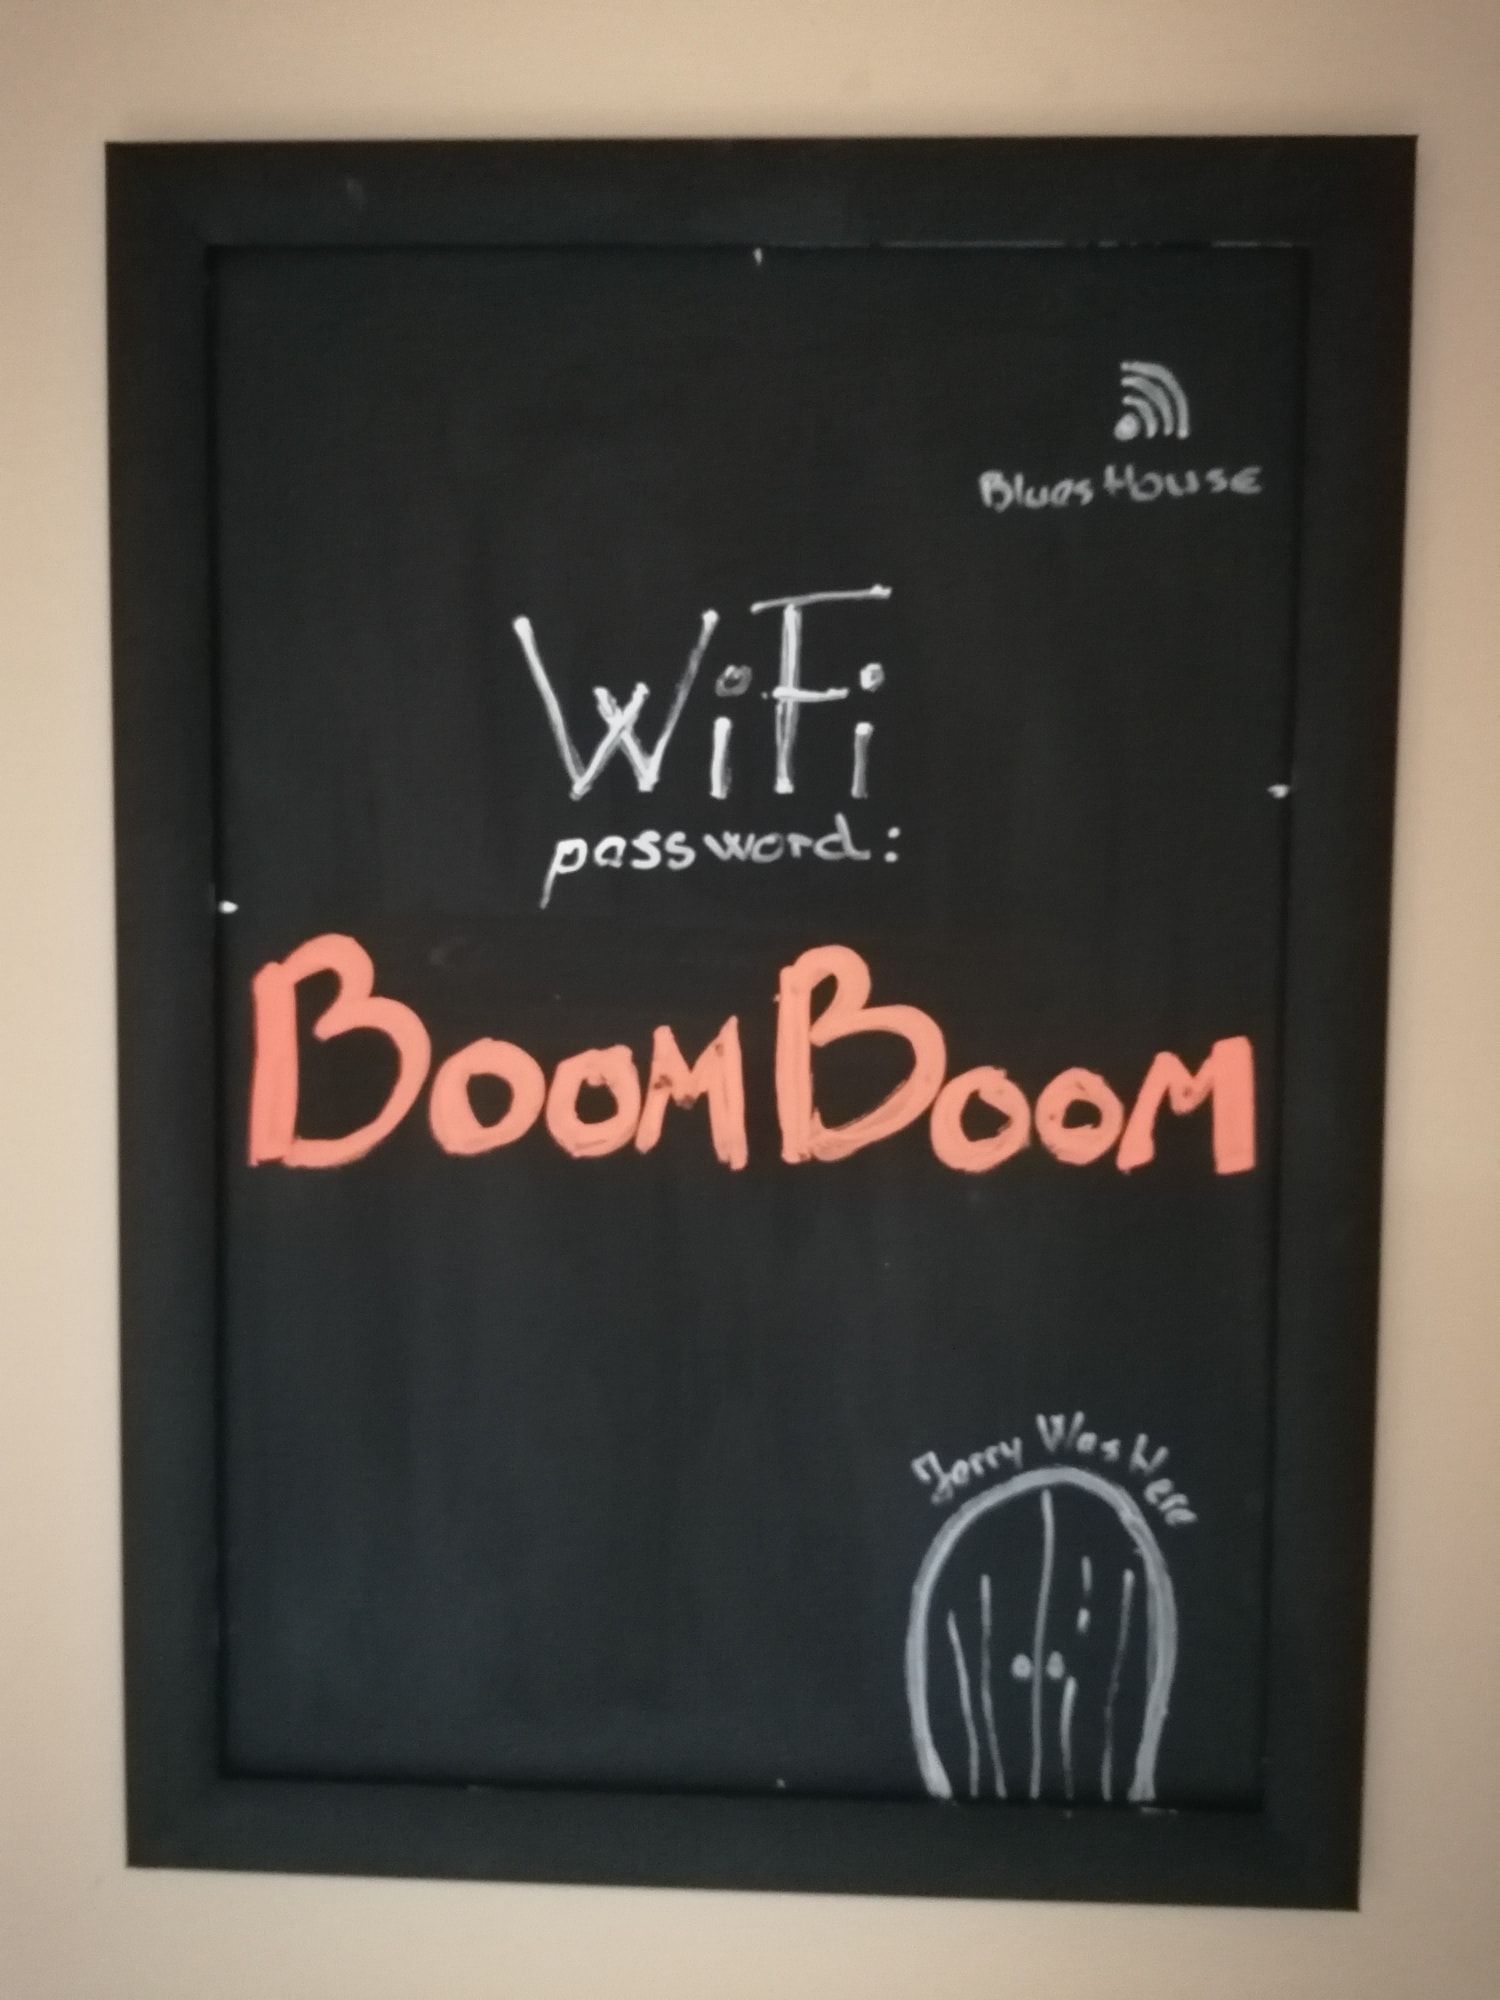 BluesHouse
WiFi
password:
BOOMBOOM
Jerry Was Here